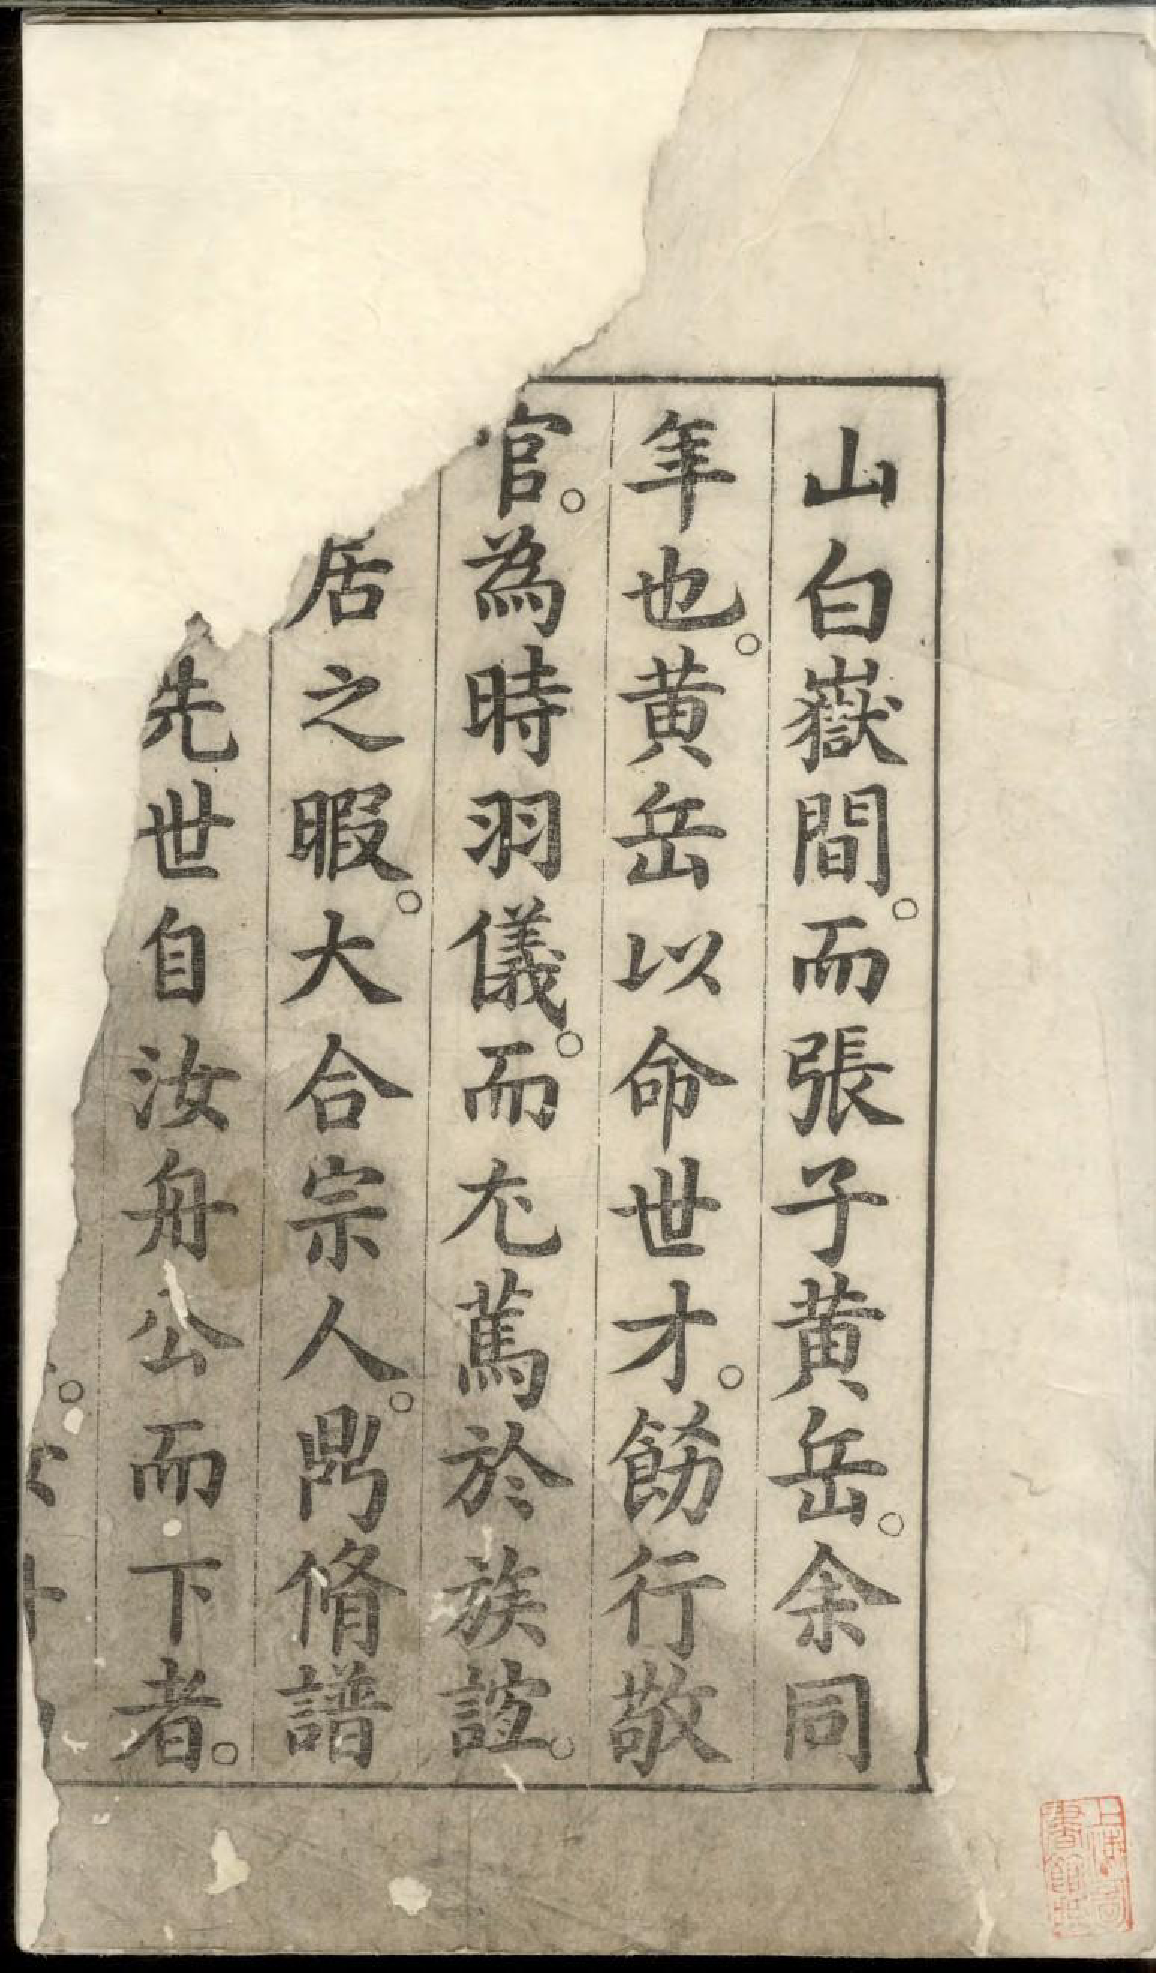 山白嶽間。而張子黄岳。余同
年也。黄岳以命世才。飭行敬
官。為時羽儀。而尤篤於族誼。
居之暇。大合宗人。鬥脩譜
先世自汝舟公而下者。
上海圖
書館藏